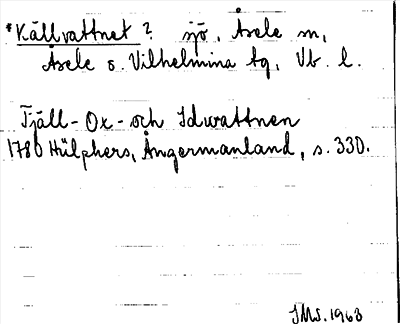 *Källvattnet? sjö, Åsele sn,
Åsele o. Vilhelmina tg, Vb. l.
Tjäll- Ox- och Idwattnen
1780 Hülphers, Ångermanland, s. 330.
SMS. 1963